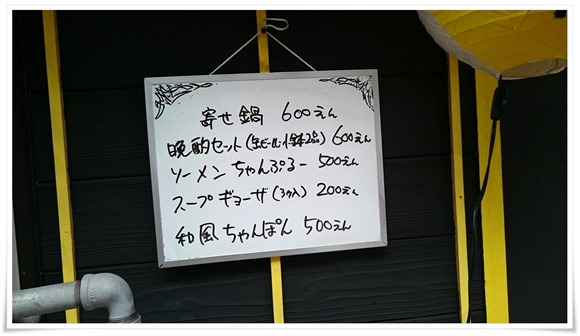 寄せ鍋 600えん
晩酌セット(生ビール・小鉢2品) 600えん
ソーメンちゃんぷるー 500えん
スープギョーザ(3ケ入) 200えん
和風ちゃんぽん 500えん